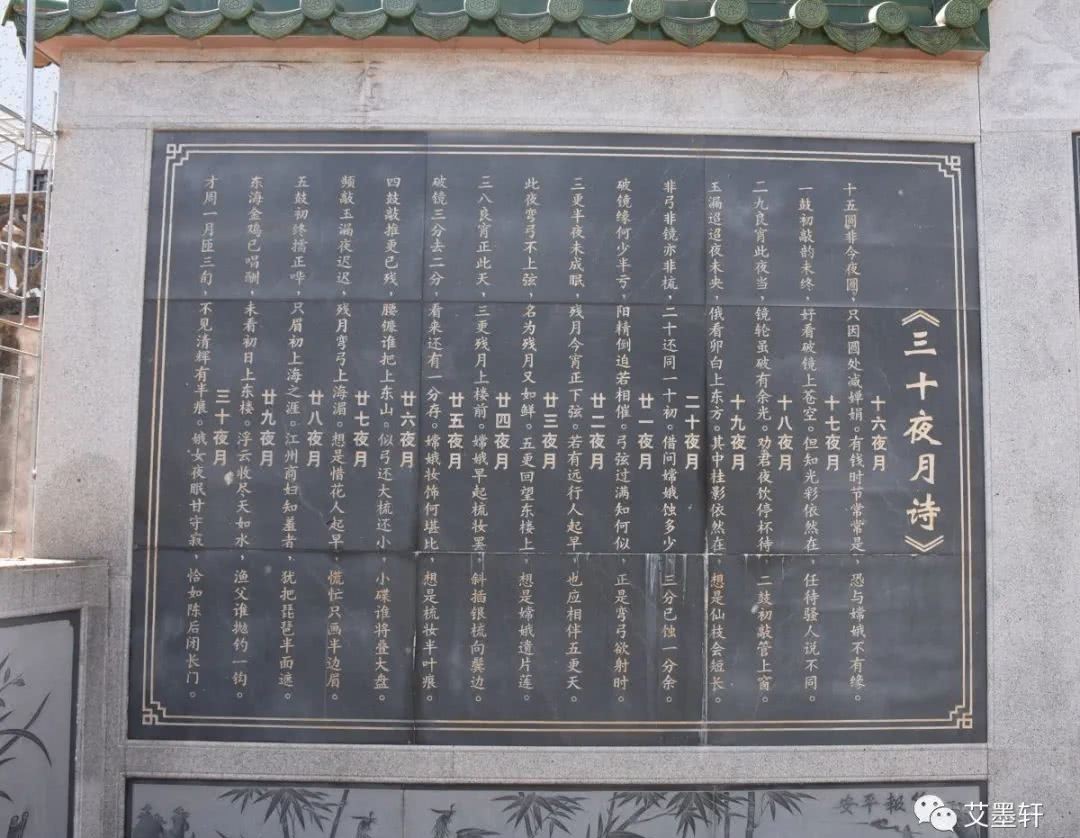 《三十夜月诗》
十六夜月
十五圆非今夜圆，只因圆处减婵娟。有钱时节常常是，恐与嫦娥不有缘。
十七夜月
一鼓初敲韵未终，好看破镜上苍空。但知光彩依然在，任待骚人说不同。
十八夜月
二九良宵此夜当，镜轮虽破有余光。劝君夜饮停杯待，二鼓初敲管上窗。
十九夜月
玉漏迢迢夜未央，俄看卯白上东方。其中桂影依然在，想是仙枝会短长。
二十夜月
非弓非镜亦非梳，二十还同一十初。借问嫦娥蚀多少，三分已蚀一分余。
廿一夜月
破镜缘何少半亏，阳精倒迫若相催。弓弦过满知何似，正是弯弓欲射时。
廿二夜月
三更半夜未成眠，残月今宵正下弦。若有远行人起早，也应相伴五更天。
廿三夜月
此夜弯弓不上弦，名为残月又如鲜。五更回望东楼上，想是嫦娥遗片莲。
廿四夜月
三八良宵正此天，三更残月上楼前。嫦娥早起梳妆罢，斜插银梳向鬓边。
廿五夜月
破镜三分去二分，看来还有一分存。嫦娥妆饰何堪比，想是梳妆半叶痕。
廿六夜月
四鼓敲推更已残，腰镰谁把上东山。似弓还大梳还小，小碟谁将叠大盘。
廿七夜月
频敲玉漏夜迟迟，残月弯弓上海湄。想是惜花人起早，慌忙只画半边眉。
廿八夜月
五鼓初终擂正哗，只眉初上海之涯。江州商妇知羞者，犹把琵琶半面遮。
廿九夜月
东海金鸡已唱酬，未看初日上东楼。浮云收尽天如水，渔父谁抛钓一钩。
三十夜月
才周一月匝三旬，不见清辉有半痕。娥女夜眠甘守寂，恰如陈后闭长门。
安平报
艾墨轩